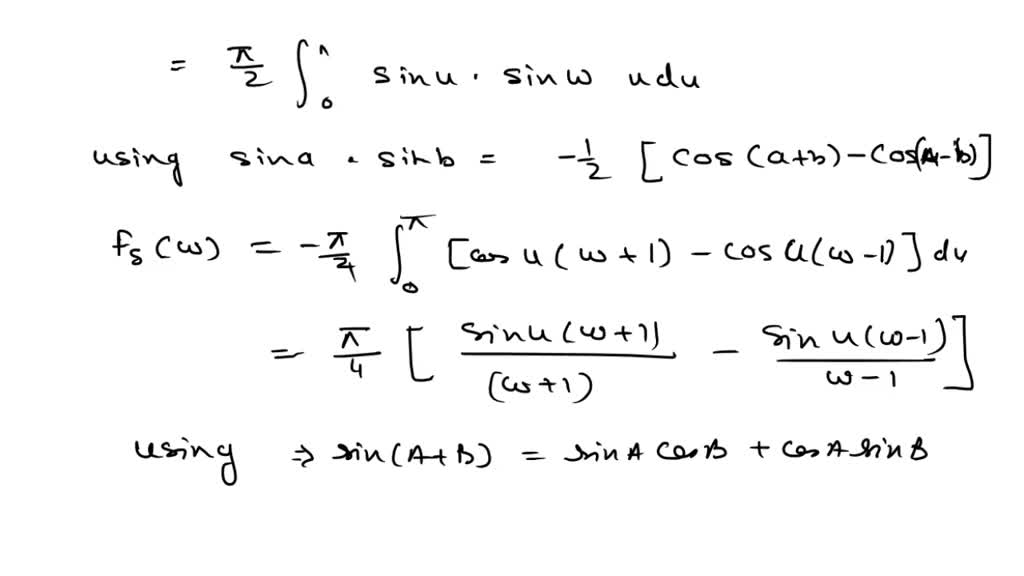 = π/2 ∫₀^π sin u · sin w u du
using sin a · sin b = -1/2 [cos(a+b) - cos(a-b)]
fs(ω) = -π/4 ∫₀^π [cos u(ω+1) - cos u(ω-1)] du
= π/4 [sin u(ω+1)/(ω+1) - sin u(ω-1)/ω-1]
using ⇒ sin(A+B) = sin A cos B + cos A sin B